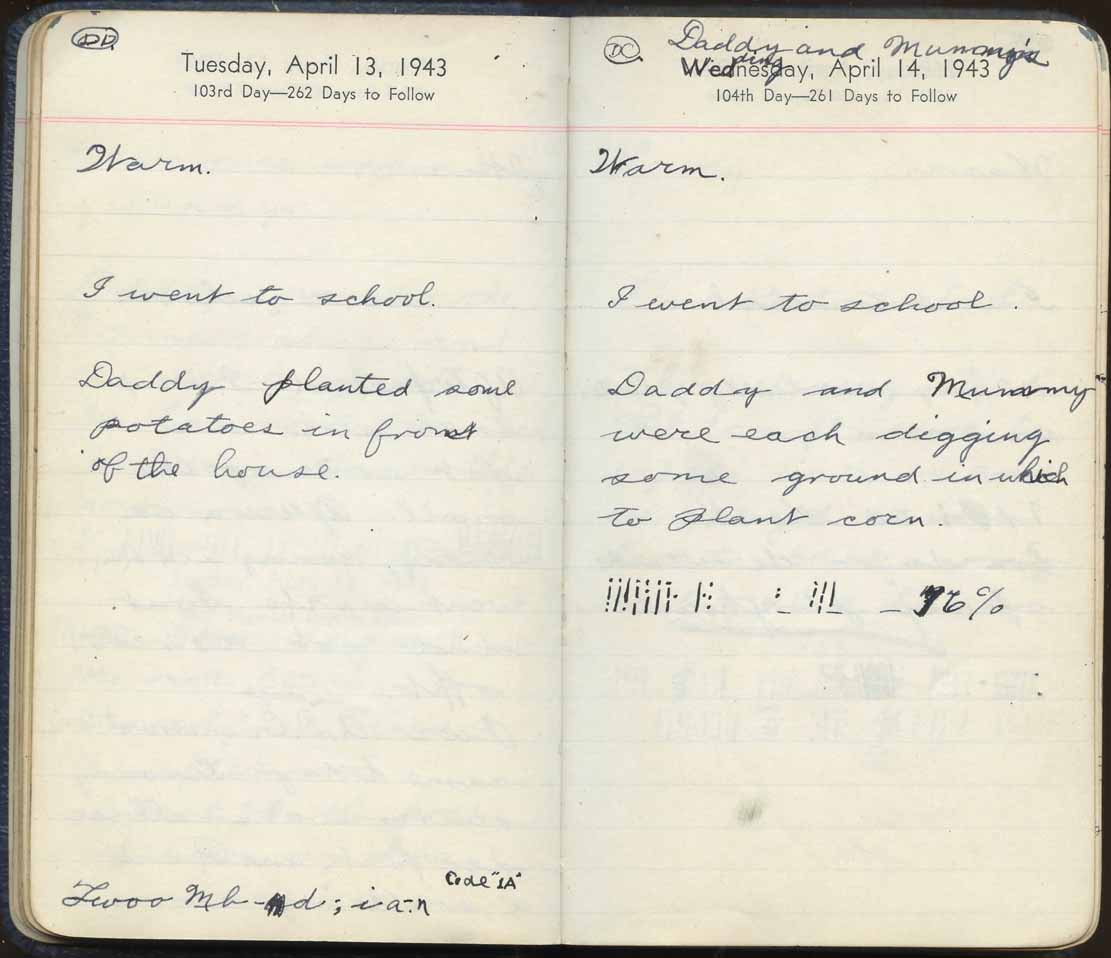 DD.
Tuesday, April 13, 1943
103rd Day—262 Days to Follow
Warm.
I went to school.
Daddy planted some
potatoes in front
of the house.
Code "1A"
DC.
Daddy and Mummy's
Wedding
Wednesday, April 14, 1943
104th Day—261 Days to Follow
Warm.
I went to school.
Daddy and Mummy
were each digging
some ground in which
to plant corn.
76%